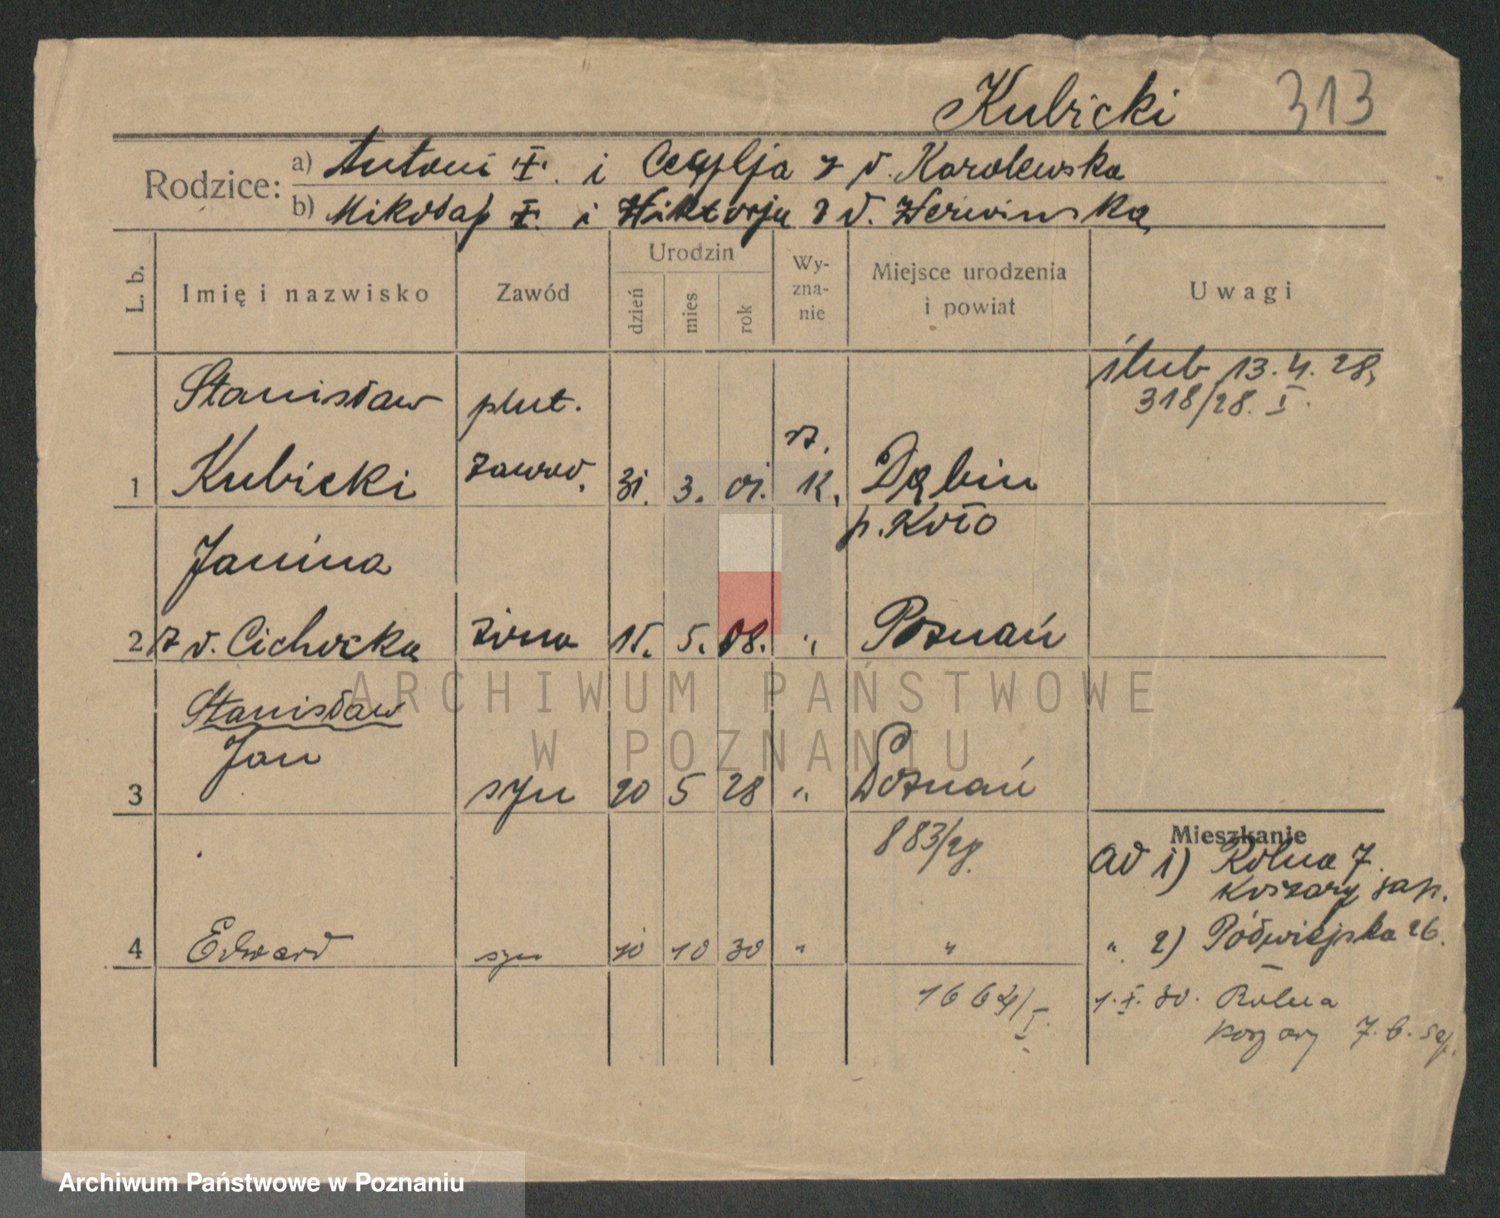 Kubicki 313
Rodzice: a) Antoni †. i Cecylja z d. Karolewska
b) Mikołaj †. i Wiktorja z d. Werwińska
L. b. Imię i nazwisko Zawód Urodzin dzień mies rok Wy-zna-nie Miejsce urodzenia i powiat Uwagi
Stanisław plut. ślub 13.4.28,
318/28. I.
1 Kubicki zawod. 31. 3. 01. rz. k. Dąbin
p. Koło
Janina
2 z d. Cichocka żona 15. 5. 08. " Poznań
ARCHIWUM PAŃSTWOWE
W POZNANIU
Stanisław
Jan
3 syn 20 5 28 " Poznań
883/28.
Mieszkanie
ad 1) Rolna 7.
Koszary sap.
4 Edward syn 10 10 30 " "
" 2) Półwiejska 26.
1664/I.
1.X.30. Rolna
Koszary 7. b. sap.
Archiwum Państwowe w Poznaniu